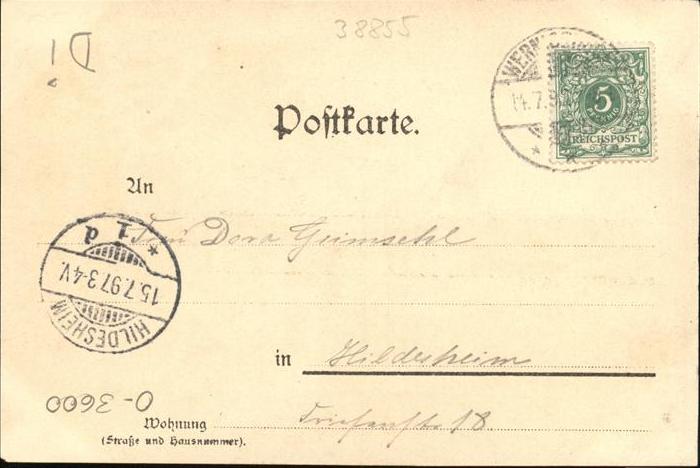 38855
D!
WERNI
14.7.9
5
PFENNIG
REICHSPOST
Postkarte.
An
Frau Dora
1 d
15.7.97.3-4V.
HILDESHEIM
in Hildesheim
O-3600
Wohnung 18.
(Straße und Hausnummer).